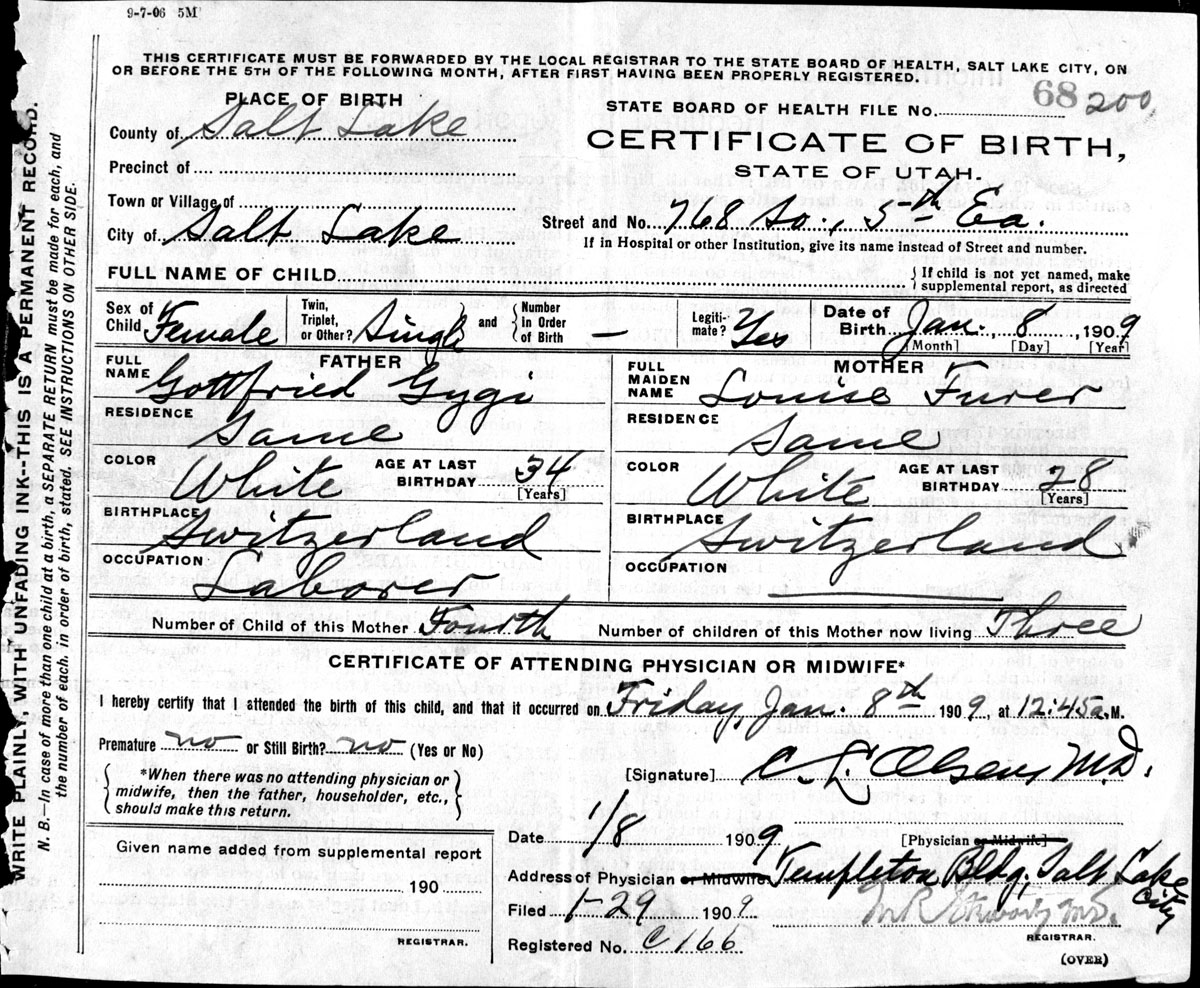 9-7-06 5M
THIS CERTIFICATE MUST BE FORWARDED BY THE LOCAL REGISTRAR TO THE STATE BOARD OF HEALTH, SALT LAKE CITY, ON
OR BEFORE THE 5TH OF THE FOLLOWING MONTH, AFTER FIRST HAVING BEEN PROPERLY REGISTERED.
68 200
PLACE OF BIRTH
STATE BOARD OF HEALTH FILE No.
County of Salt Lake
CERTIFICATE OF BIRTH,
STATE OF UTAH.
Precinct of
Town or Village of
Street and No. 768 So., 5th Ea.
City of Salt Lake
If in Hospital or other Institution, give its name instead of Street and number.
FULL NAME OF CHILD
{If child is not yet named, make
supplemental report, as directed
Sex of Child Female
Twin, Triplet, or Other? Single } and { Number in Order of Birth —
Legiti-mate? Yes
Date of Birth Jan. 8, 1909
[Month] [Day] [Year]
FATHER
FULL NAME Gottfried Gygi
RESIDENCE Same
COLOR White AGE AT LAST BIRTHDAY 34 [Years]
BIRTHPLACE Switzerland
OCCUPATION Laborer
MOTHER
FULL MAIDEN NAME Louise Furer
RESIDENCE Same
COLOR White AGE AT LAST BIRTHDAY 28 [Years]
BIRTHPLACE Switzerland
OCCUPATION
Number of Child of this Mother Fourth Number of children of this Mother now living Three
CERTIFICATE OF ATTENDING PHYSICIAN OR MIDWIFE*
I hereby certify that I attended the birth of this child, and that it occurred on Friday, Jan. 8th 1909, at 12:45 a. M.
Premature no or Still Birth? no (Yes or No)
{*When there was no attending physician or
midwife, then the father, householder, etc.,
should make this return.}
[Signature] C L Olsen, M.D.
[Physician or Midwife]
Date 1/8 1909
Address of Physician or Midwife Templeton Bldg, Salt Lake City
Filed 1-29 1909
M.D.
REGISTRAR.
Registered No. C 166
(OVER)
Given name added from supplemental report
190
REGISTRAR.
WRITE PLAINLY, WITH UNFADING INK--THIS IS A PERMANENT RECORD.
N. B.—In case of more than one child at a birth, a SEPARATE RETURN must be made for each, and
the number of each, in order of birth, stated. SEE INSTRUCTIONS ON OTHER SIDE.